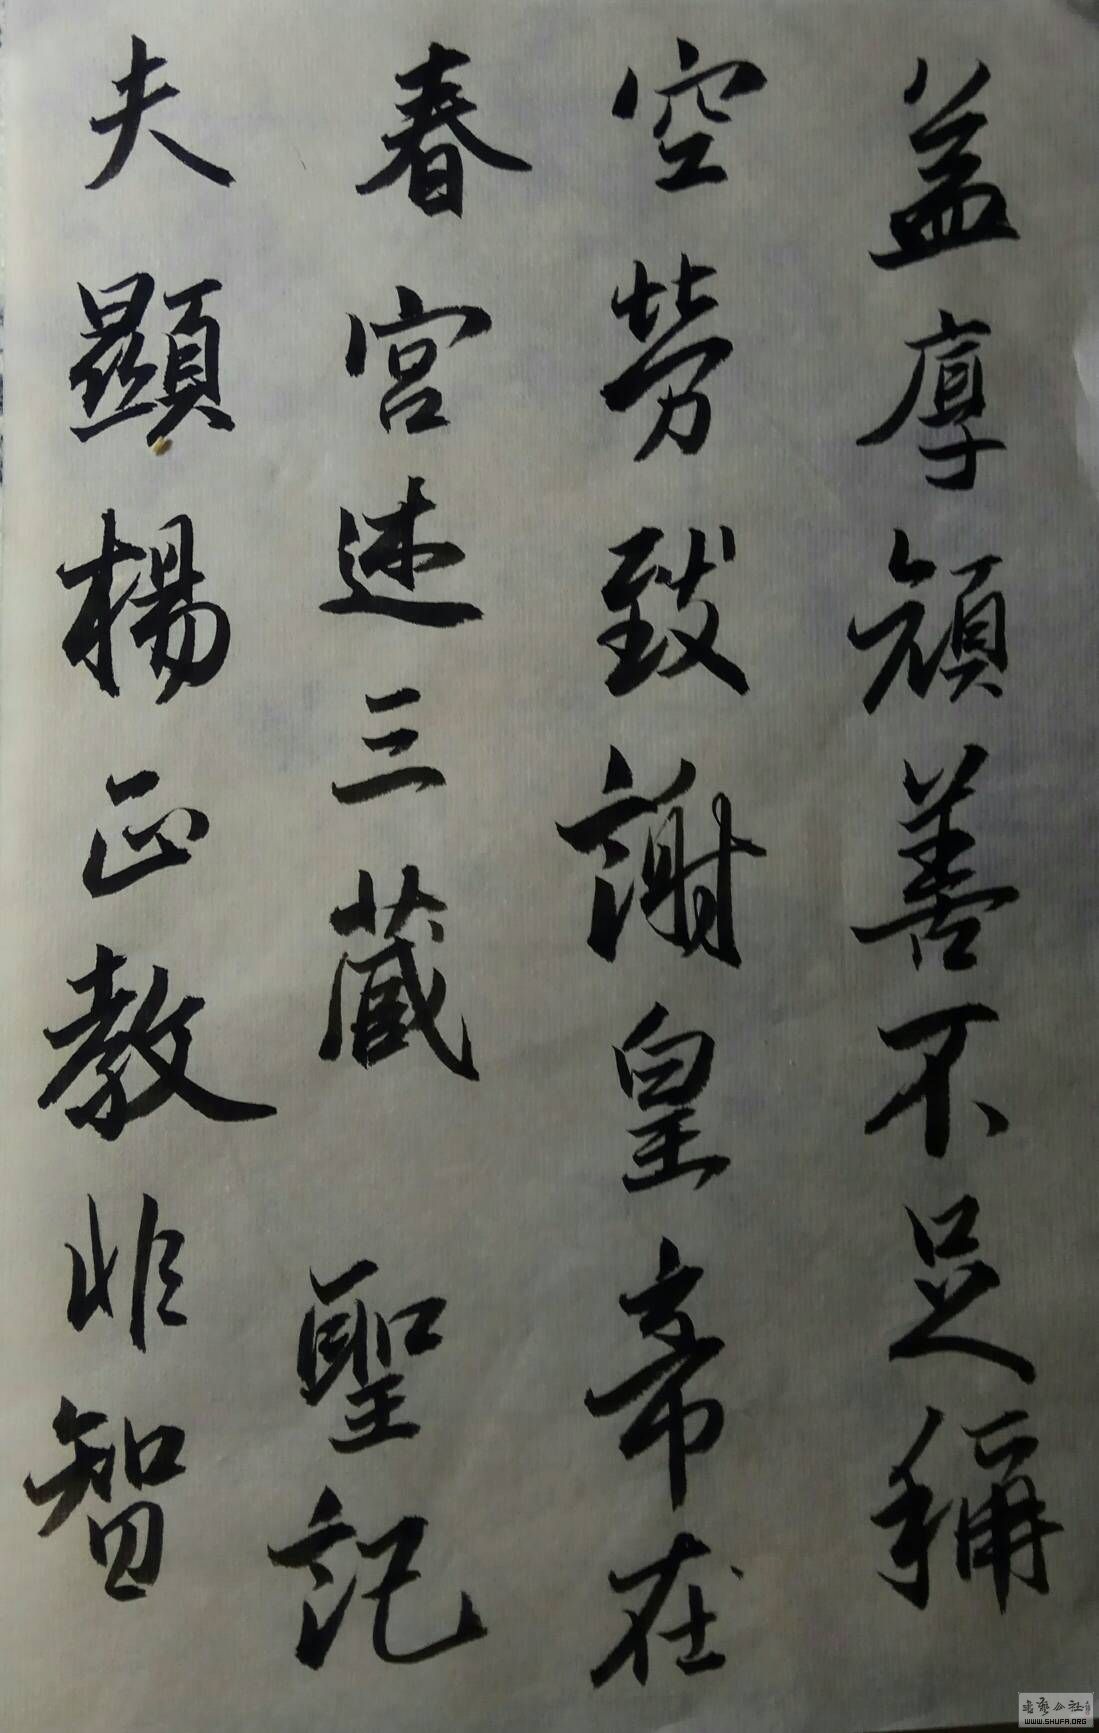 益厚顔善不足稱
空勞致謝皇帝在
春宮述三藏 聖記
夫顯楊正教非智
書藝公社
WWW.SHUFA.ORG